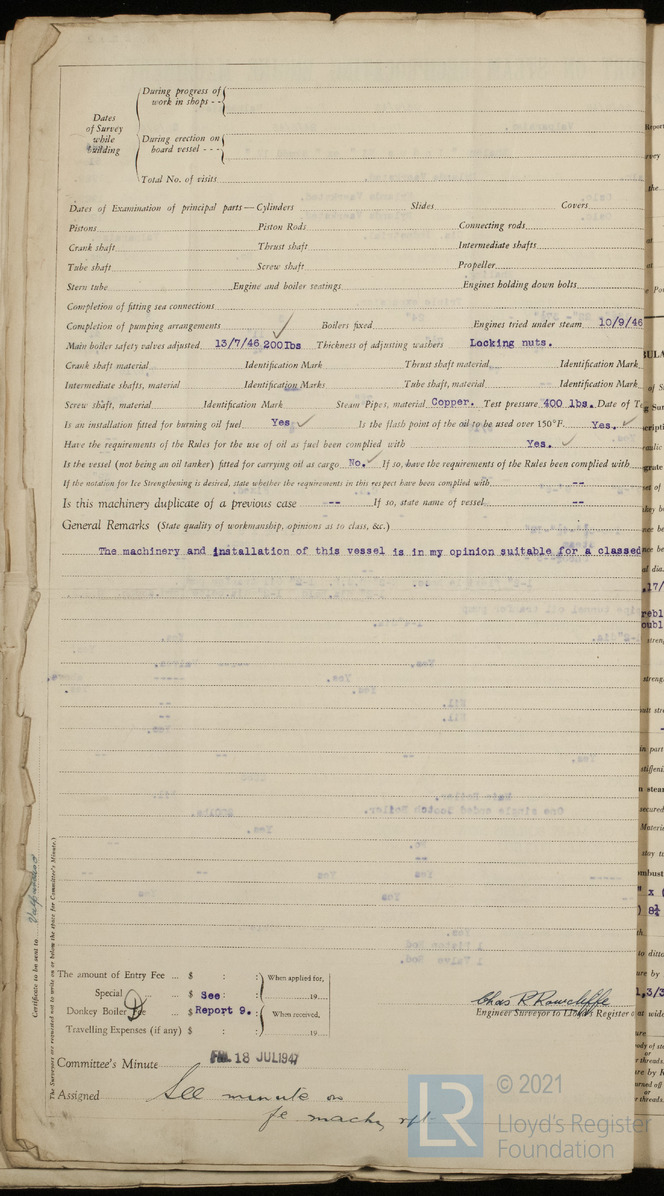 During progress of
work in shops - -
Dates
of Survey
while
building
During erection on
board vessel - - -
Total No. of visits
Dates of Examination of principal parts — Cylinders Slides Covers
Pistons Piston Rods Connecting rods
Crank shaft Thrust shaft Intermediate shafts
Tube shaft Screw shaft Propeller
Stern tube Engine and boiler seatings Engines holding down bolts
Completion of fitting sea connections
Completion of pumping arrangements ✓ Boilers fixed Engines tried under steam 10/9/46
Main boiler safety valves adjusted 13/7/46 200lbs Thickness of adjusting washers Locking nuts.
Crank shaft material Identification Mark Thrust shaft material Identification Mark
Intermediate shafts, material Identification Marks Tube shaft, material -- Identification Mark
Screw shaft, material Identification Mark Steam Pipes, material Copper. Test pressure 400 lbs. Date of Te
Is an installation fitted for burning oil fuel Yes ✓ Is the flash point of the oil to be used over 150°F. Yes. ✓
Have the requirements of the Rules for the use of oil as fuel been complied with Yes. ✓
Is the vessel (not being an oil tanker) fitted for carrying oil as cargo No. ✓ If so, have the requirements of the Rules been complied with
If the notation for Ice Strengthening is desired, state whether the requirements in this respect have been complied with --
Is this machinery duplicate of a previous case --- If so, state name of vessel --
General Remarks (State quality of workmanship, opinions as to class, &c.)
The machinery and installation of this vessel is in my opinion suitable for a classed
Certificate to be sent to Valparaiso
(The Surveyors are requested not to write on or below the space for Committee's Minute.)
The amount of Entry Fee ... $ : : When applied for,
Special ... $ See : 19
Donkey Boiler Fee ... $ Report 9. : When received,
Travelling Expenses (if any) $ : : 19
Chas R Rowcliffe
Engineer Surveyor to Lloyd's Register o
Committee's Minute FRI. 18 JUL 1947
Assigned See minute on
fe machy rpt.
© 2021
LR
Lloyd's Register
Foundation